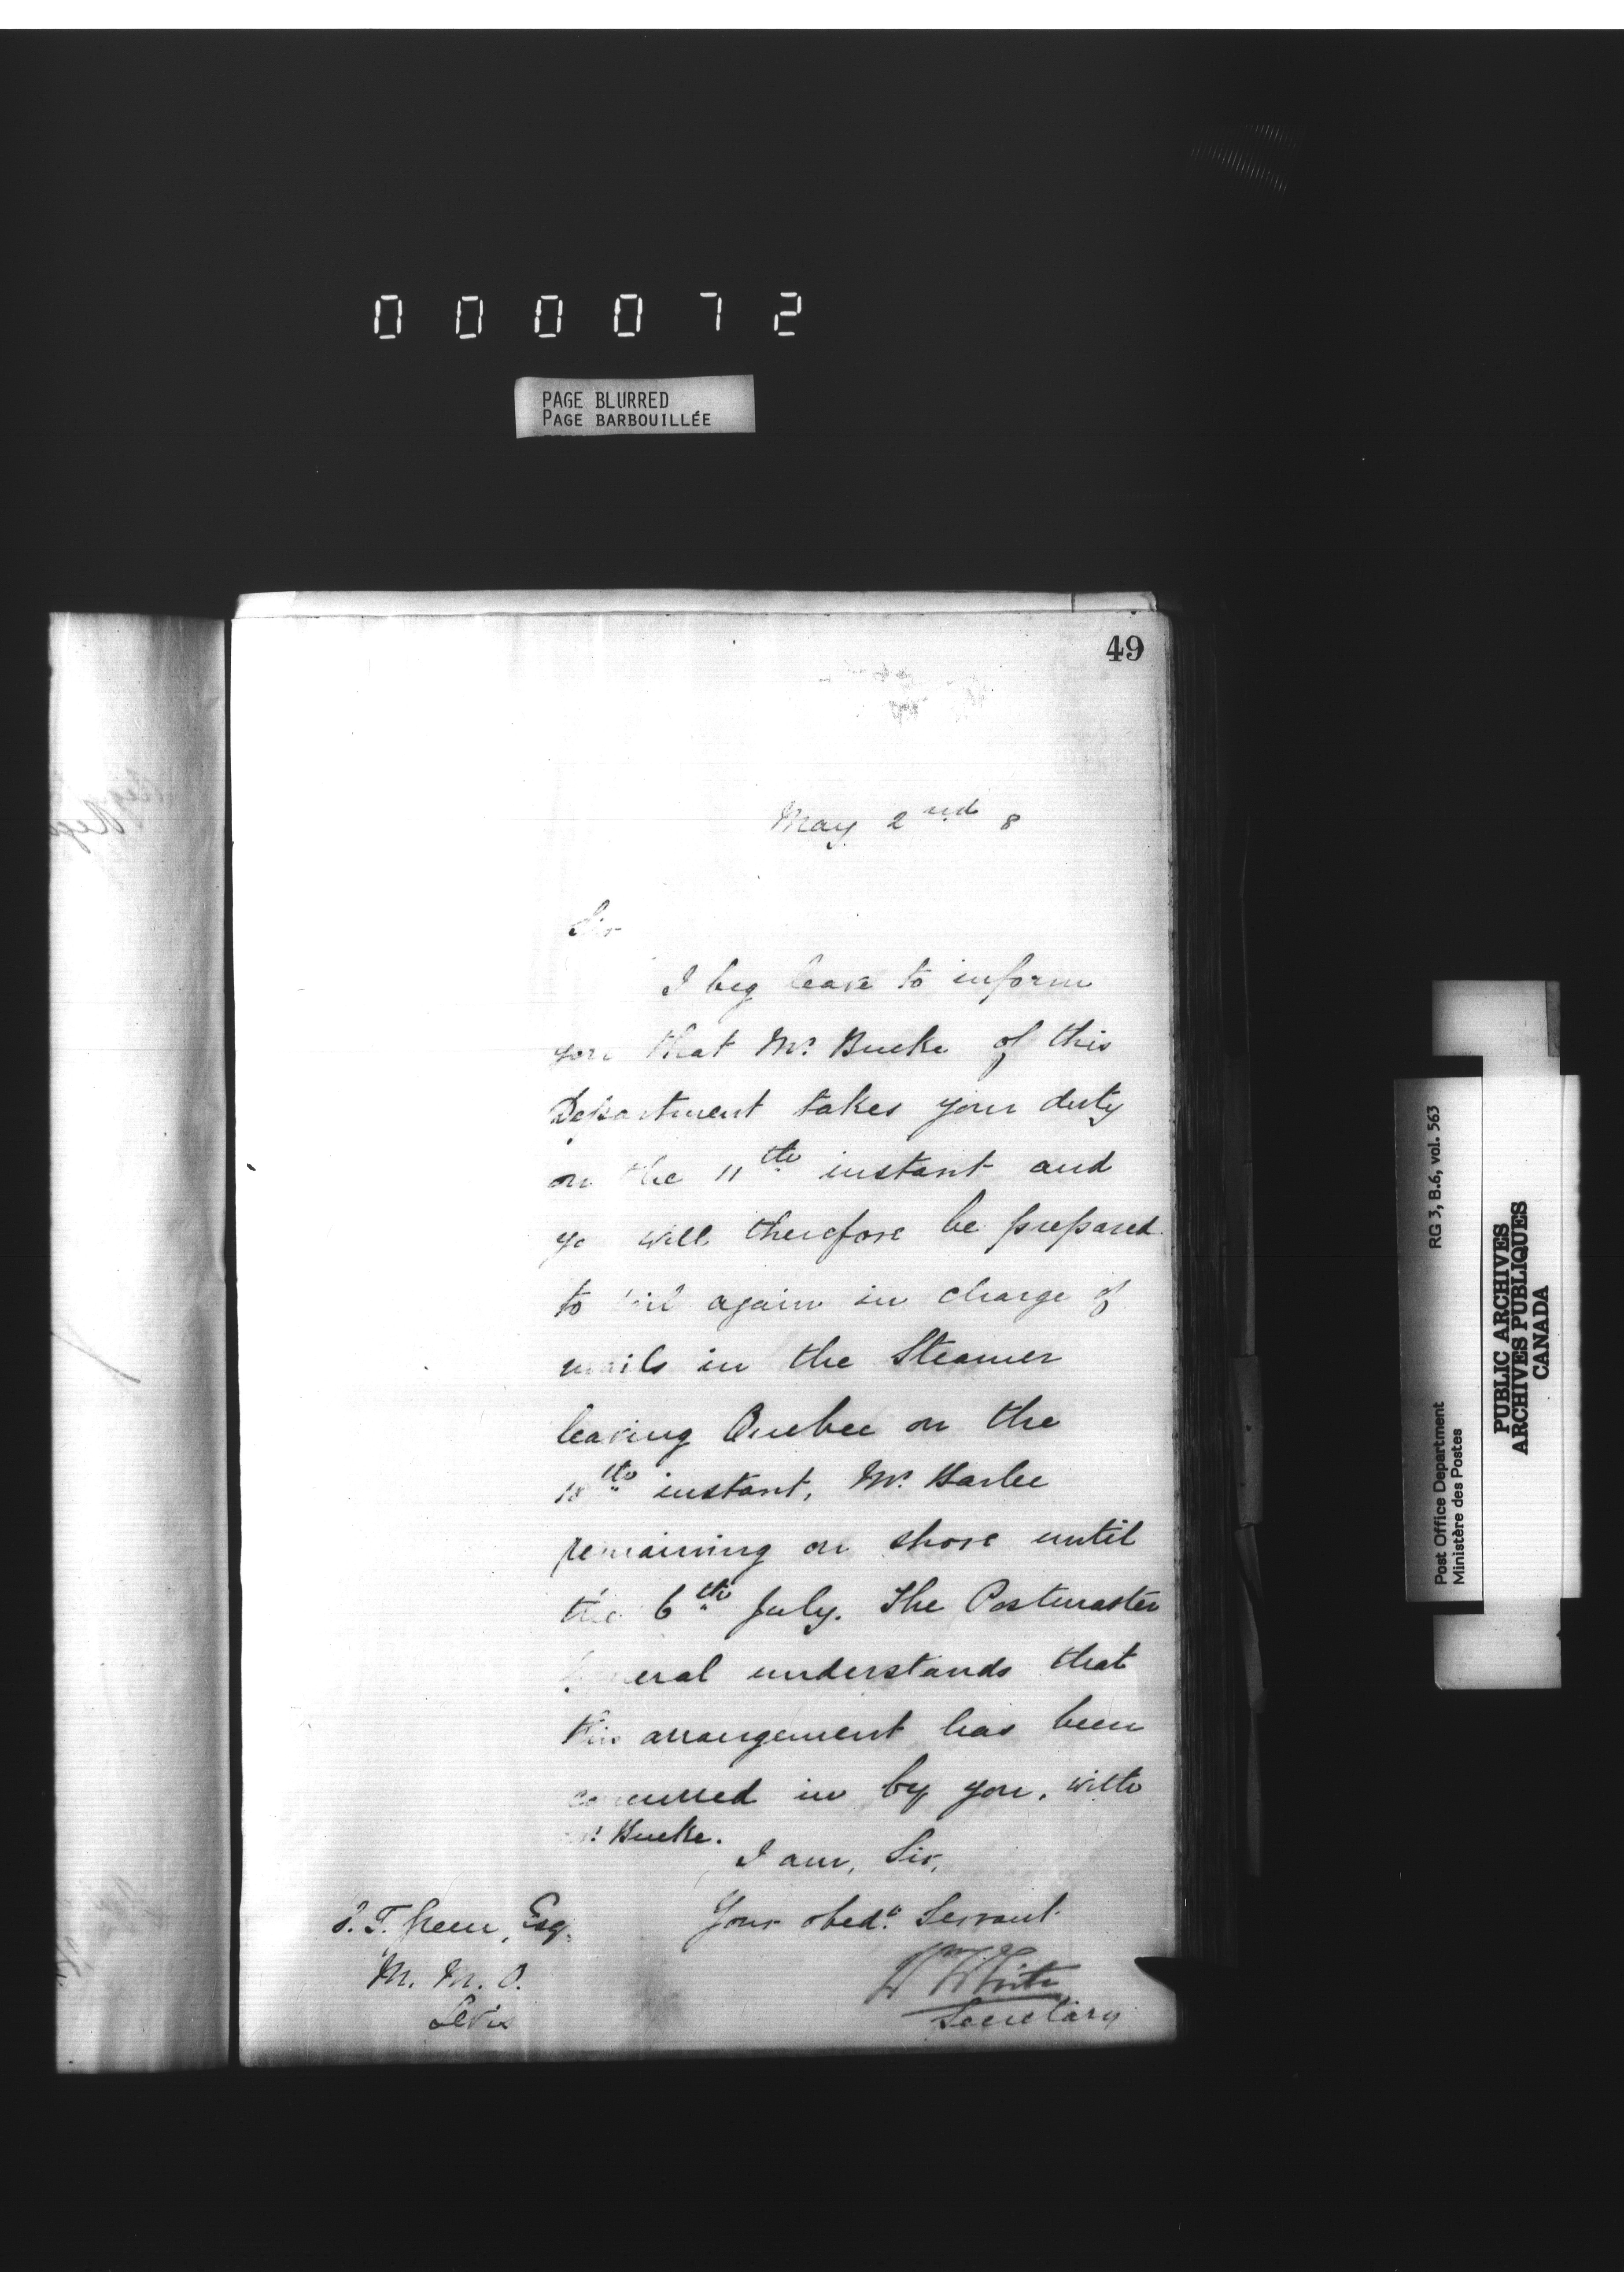 000072
PAGE BLURRED
PAGE BARBOUILLÉE
49
May 2nd 8
Sir
I beg leave to inform
you that Mr. Bucke of this
Department takes your duty
on the 11th instant and
yo will therefore be prepared
to again in charge of
mails in the Steamer
leaving Quebec on the
18th instant, Mr.
remaining on shore until
the 6th July. The Postmaster
eral understands that
this arrangement has been
concurred in by you, with
Mr. Bucke.
I am, Sir,
Your obedt. Servant
Wm White
Secretary
S. T. Green, Esq.
M. M. O.
Levis
Post Office Department RG 3, B.6, vol. 563
Ministère des Postes
PUBLIC ARCHIVES
ARCHIVES PUBLIQUES
CANADA